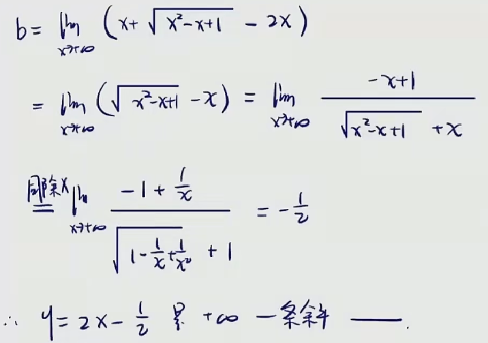 b = lim x→+∞ (x + √(x²-x+1) - 2x)
= lim x→+∞ (√(x²-x+1) - x) = lim x→+∞ (-x+1)/(√(x²-x+1) + x)
同除x = lim x→+∞ (-1 + 1/x)/(√(1 - 1/x + 1/x²) + 1) = -1/2
∴ y = 2x - 1/2 是 +∞ 一条斜 ——.